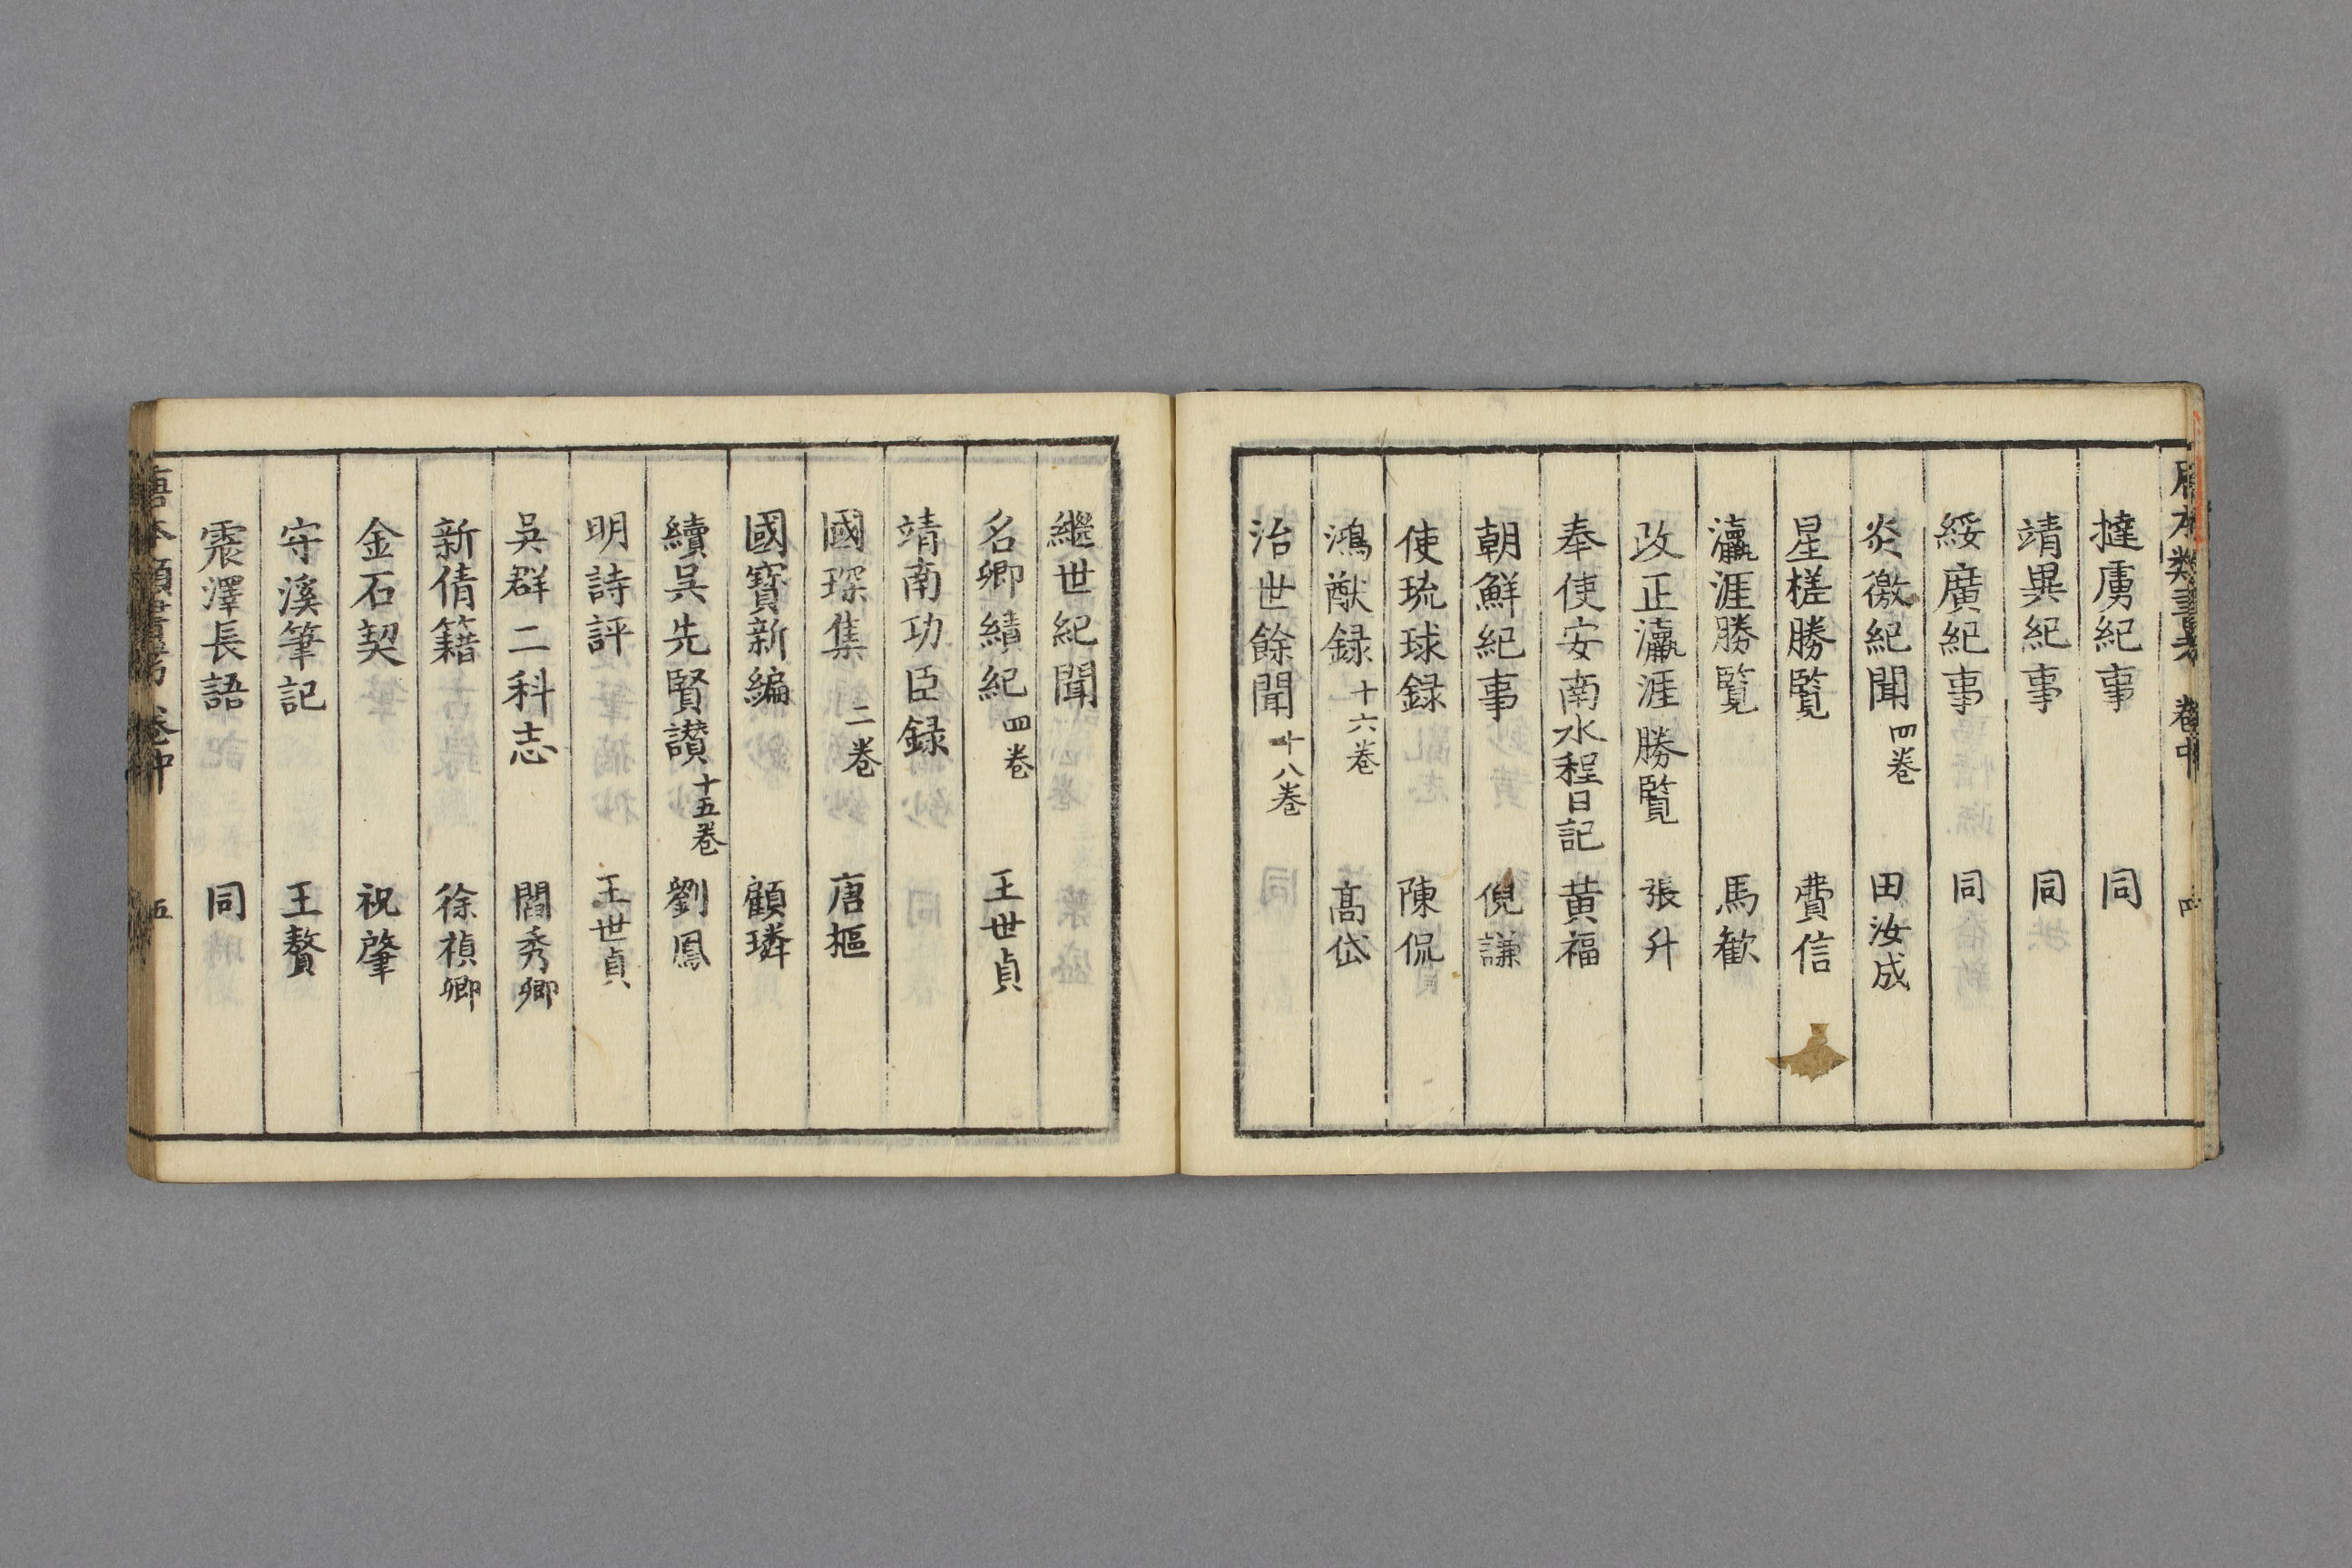 唐本類書考 卷中 四
撻虜紀事 同
靖異紀事 同
綏廣紀事 同
炎徼紀聞 四卷 田汝成
星槎勝覧 費信
瀛涯勝覧 馬歓
改正瀛涯勝覧 張升
奉使安南水程日記 黄福
朝鮮紀事 倪謙
使琉球録 陳侃
鴻猷録 十六卷 高岱
治世餘聞 十八卷
繼世紀聞
名卿績紀 四卷 王世貞
靖南功臣録
國琛集 二卷 唐樞
國寳新編 顧璘
續吳先賢讃 十五卷 劉鳳
明詩評 王世貞
吳群二科志 閻秀卿
新倩籍 徐禎卿
金石契 祝肇
守溪筆記 王鏊
震澤長語 同
唐本類書考 卷中 五